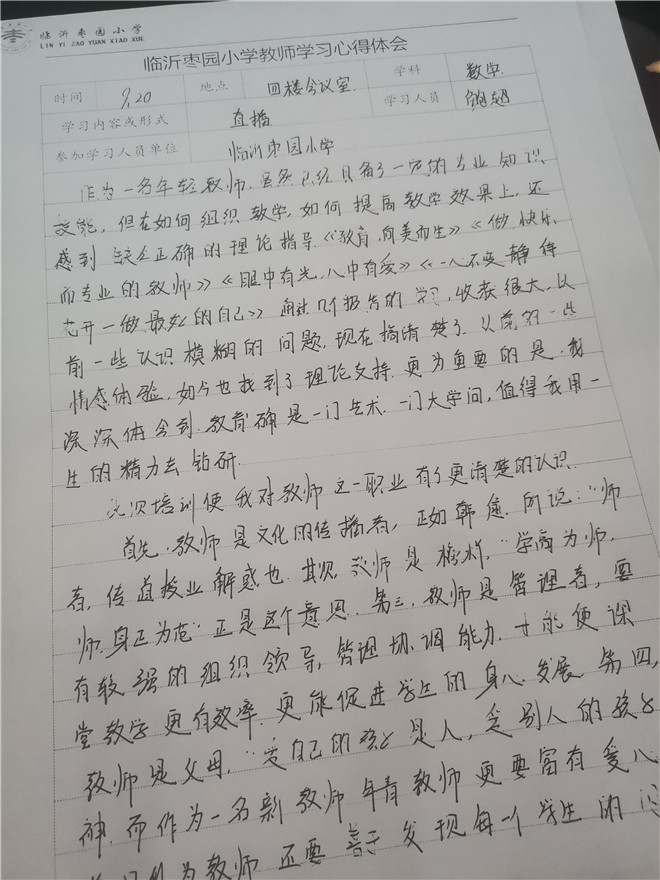 临沂枣园小学
LIN YI ZAO YUAN XIAO XUE
临沂枣园小学教师学习心得体会
时间 9.20 地点 四楼会议室 学科 数学
学习内容或形式 直播 学习人员
参加学习人员单位 临沂枣园小学
作为一名年轻教师,虽然已经具备了一定的专业知识
技能,但在如何组织教学,如何提高教学效果上,还
感到缺乏正确的理论指导《教育,向美而生》《做快乐
而专业的教师》《眼中有光,心中有爱》《一心不变静待
花开一做最好的自己》通过几个报告的学习,收获很大,以
前一些认识模糊的问题,现在搞清楚了.以前的一些
情感体验,如今也找到了理论支持.更为重要的是,我
深深体会到.教育确是一门艺术.一门大学问,值得我用一
生的精力去钻研.
此次培训使我对教师这一职业有了更清楚的认识.
首先.教师是文化的传播者,正如韩愈.所说:"师
者,传道授业解惑也.其次,教师是榜样,"学高为师.
师.身正为范"正是这个意思.第三,教师是管理者,要
有较强的组织领导,管理协调能力.才能使课
堂教学更有效率.更能促进学生的身心发展.第四,
教师是父母,"爱自己的孩子是人,爱别人的孩子
神.而作为一名新教师年青教师更要富有爱心
为教师还要善于发现每一个学生的闪